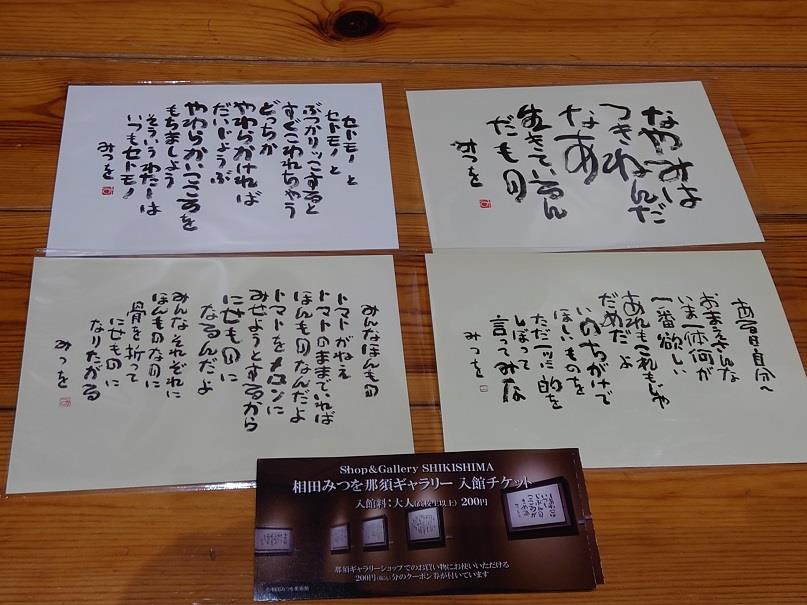 セトモノと
セトモノと
ぶつかりッこすると
すぐこわれちゃう
どっちか
やわらかければ
だいじょうぶ
やわらかいこころを
もちましょう
そういうわたしは
いつもセトモノ
みつを
なやみは
つきねんだ
なあ
生きているん
だもの
みつを
みんなほんもの
トマトがねえ
トマトのままでいれば
ほんものなんだよ
トマトをメロンに
みせようとするから
にせものに
なるんだよ
みんなそれぞれに
ほんものなのに
骨を折って
にせものに
なりたがる
みつを
ある日自分へ
おまえさんな
いま一体何が
一番欲しい
あれもこれもじゃ
だめだよ
いのちがけで
ほしいものを
ただ一ツに的を
しぼって
言ってみな
みつを
Shop&Gallery SHIKISHIMA
相田みつを那須ギャラリー 入館チケット
入館料:大人(高校生以上) 200円
那須ギャラリーショップでのお買い物にお使いいただける
200円(税込)分のクーポン券が付いています
©相田みつを美術館